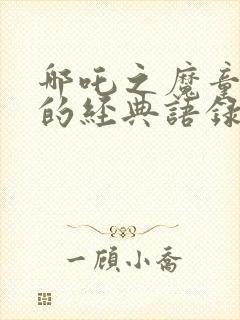 哪吒之魔童
的經典語錄
一顧小喬